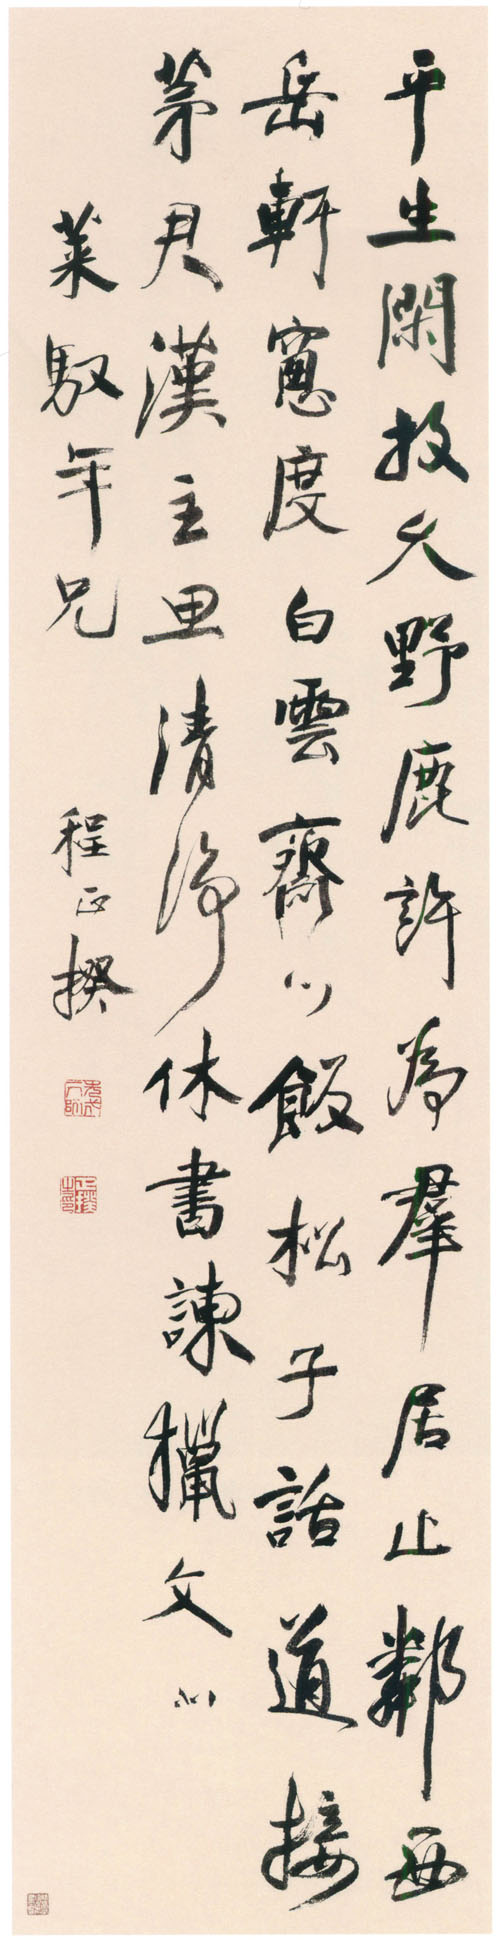 平生閑放久野鹿許為羣居止鄰西
岳軒窻度白雲齋心飯松子話道接
茅君漢主思清淨休書諫獵文
馭年兄
程正揆